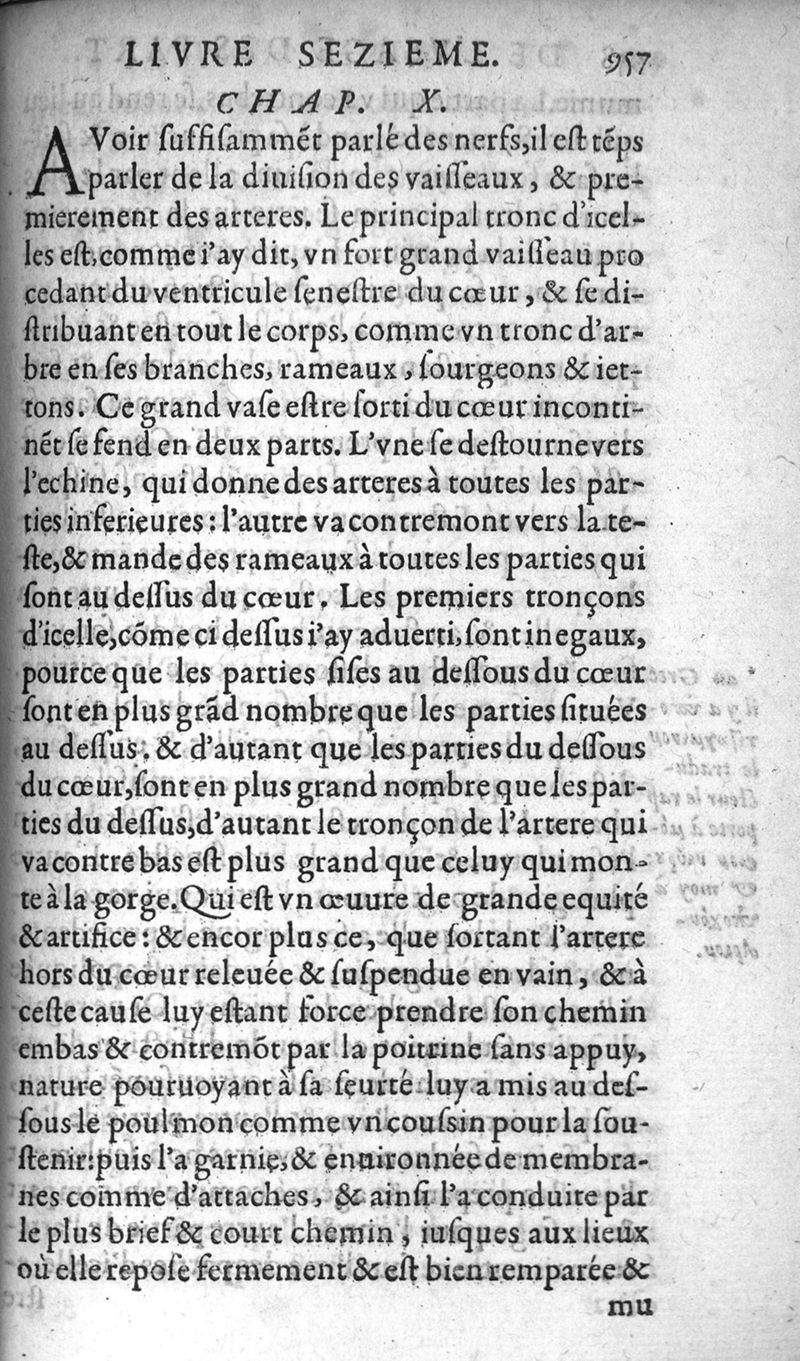 LIVRE SEZIEME. 957
CHAP. X.
AVoir ſuffiſammẽt parlé des nerfs, il eſt tẽps
parler de la diuiſion des vaiſſeaux, & pre-
mierement des arteres. Le principal tronc d'icel-
les eſt, comme i'ay dit, vn fort grand vaiſſeau pro
cedant du ventricule ſeneſtre du cœur, & ſe di-
ſtribuant en tout le corps, comme vn tronc d'ar-
bre en ſes branches, rameaux, ſourgeons & iet-
tons. Ce grand vaſe eſtre ſorti du cœur inconti-
nẽt ſe fend en deux parts. L'vne ſe deſtourne vers
l'echine, qui donne des arteres à toutes les par-
ties inferieures: l'autre va contremont vers la te-
ſte, & mande des rameaux à toutes les parties qui
ſont au deſſus du cœur. Les premiers tronçons
d'icelle, cõme ci deſſus i'ay aduerti, ſont inegaux,
pource que les parties ſiſes au deſſous du cœur
ſont en plus grãd nombre que les parties ſituées
au deſſus. & d'autant que les parties du deſſous
du cœur, ſont en plus grand nombre que les par-
ties du deſſus, d'autant le tronçon de l'artere qui
va contrebas eſt plus grand que celuy qui mon-
te à la gorge. Qui eſt vn œuure de grande equité
& artifice: & encor plus ce, que ſortant l'artere
hors du cœur releuée & ſuſpendue en vain, & à
ceſte cauſe luy eſtant force prendre ſon chemin
embas & contremõt par la poitrine ſans appuy,
nature pouruoyant à ſa ſeurté luy a mis au deſ-
ſous le poulmon comme vn couſsin pour la ſou-
ſtenir: puis l'a garnie, & enuironnée de membra-
nes comme d'attaches, & ainſi l'a conduite par
le plus brief & court chemin, iuſques aux lieux
où elle repoſe fermement & eſt bien remparée &
mu